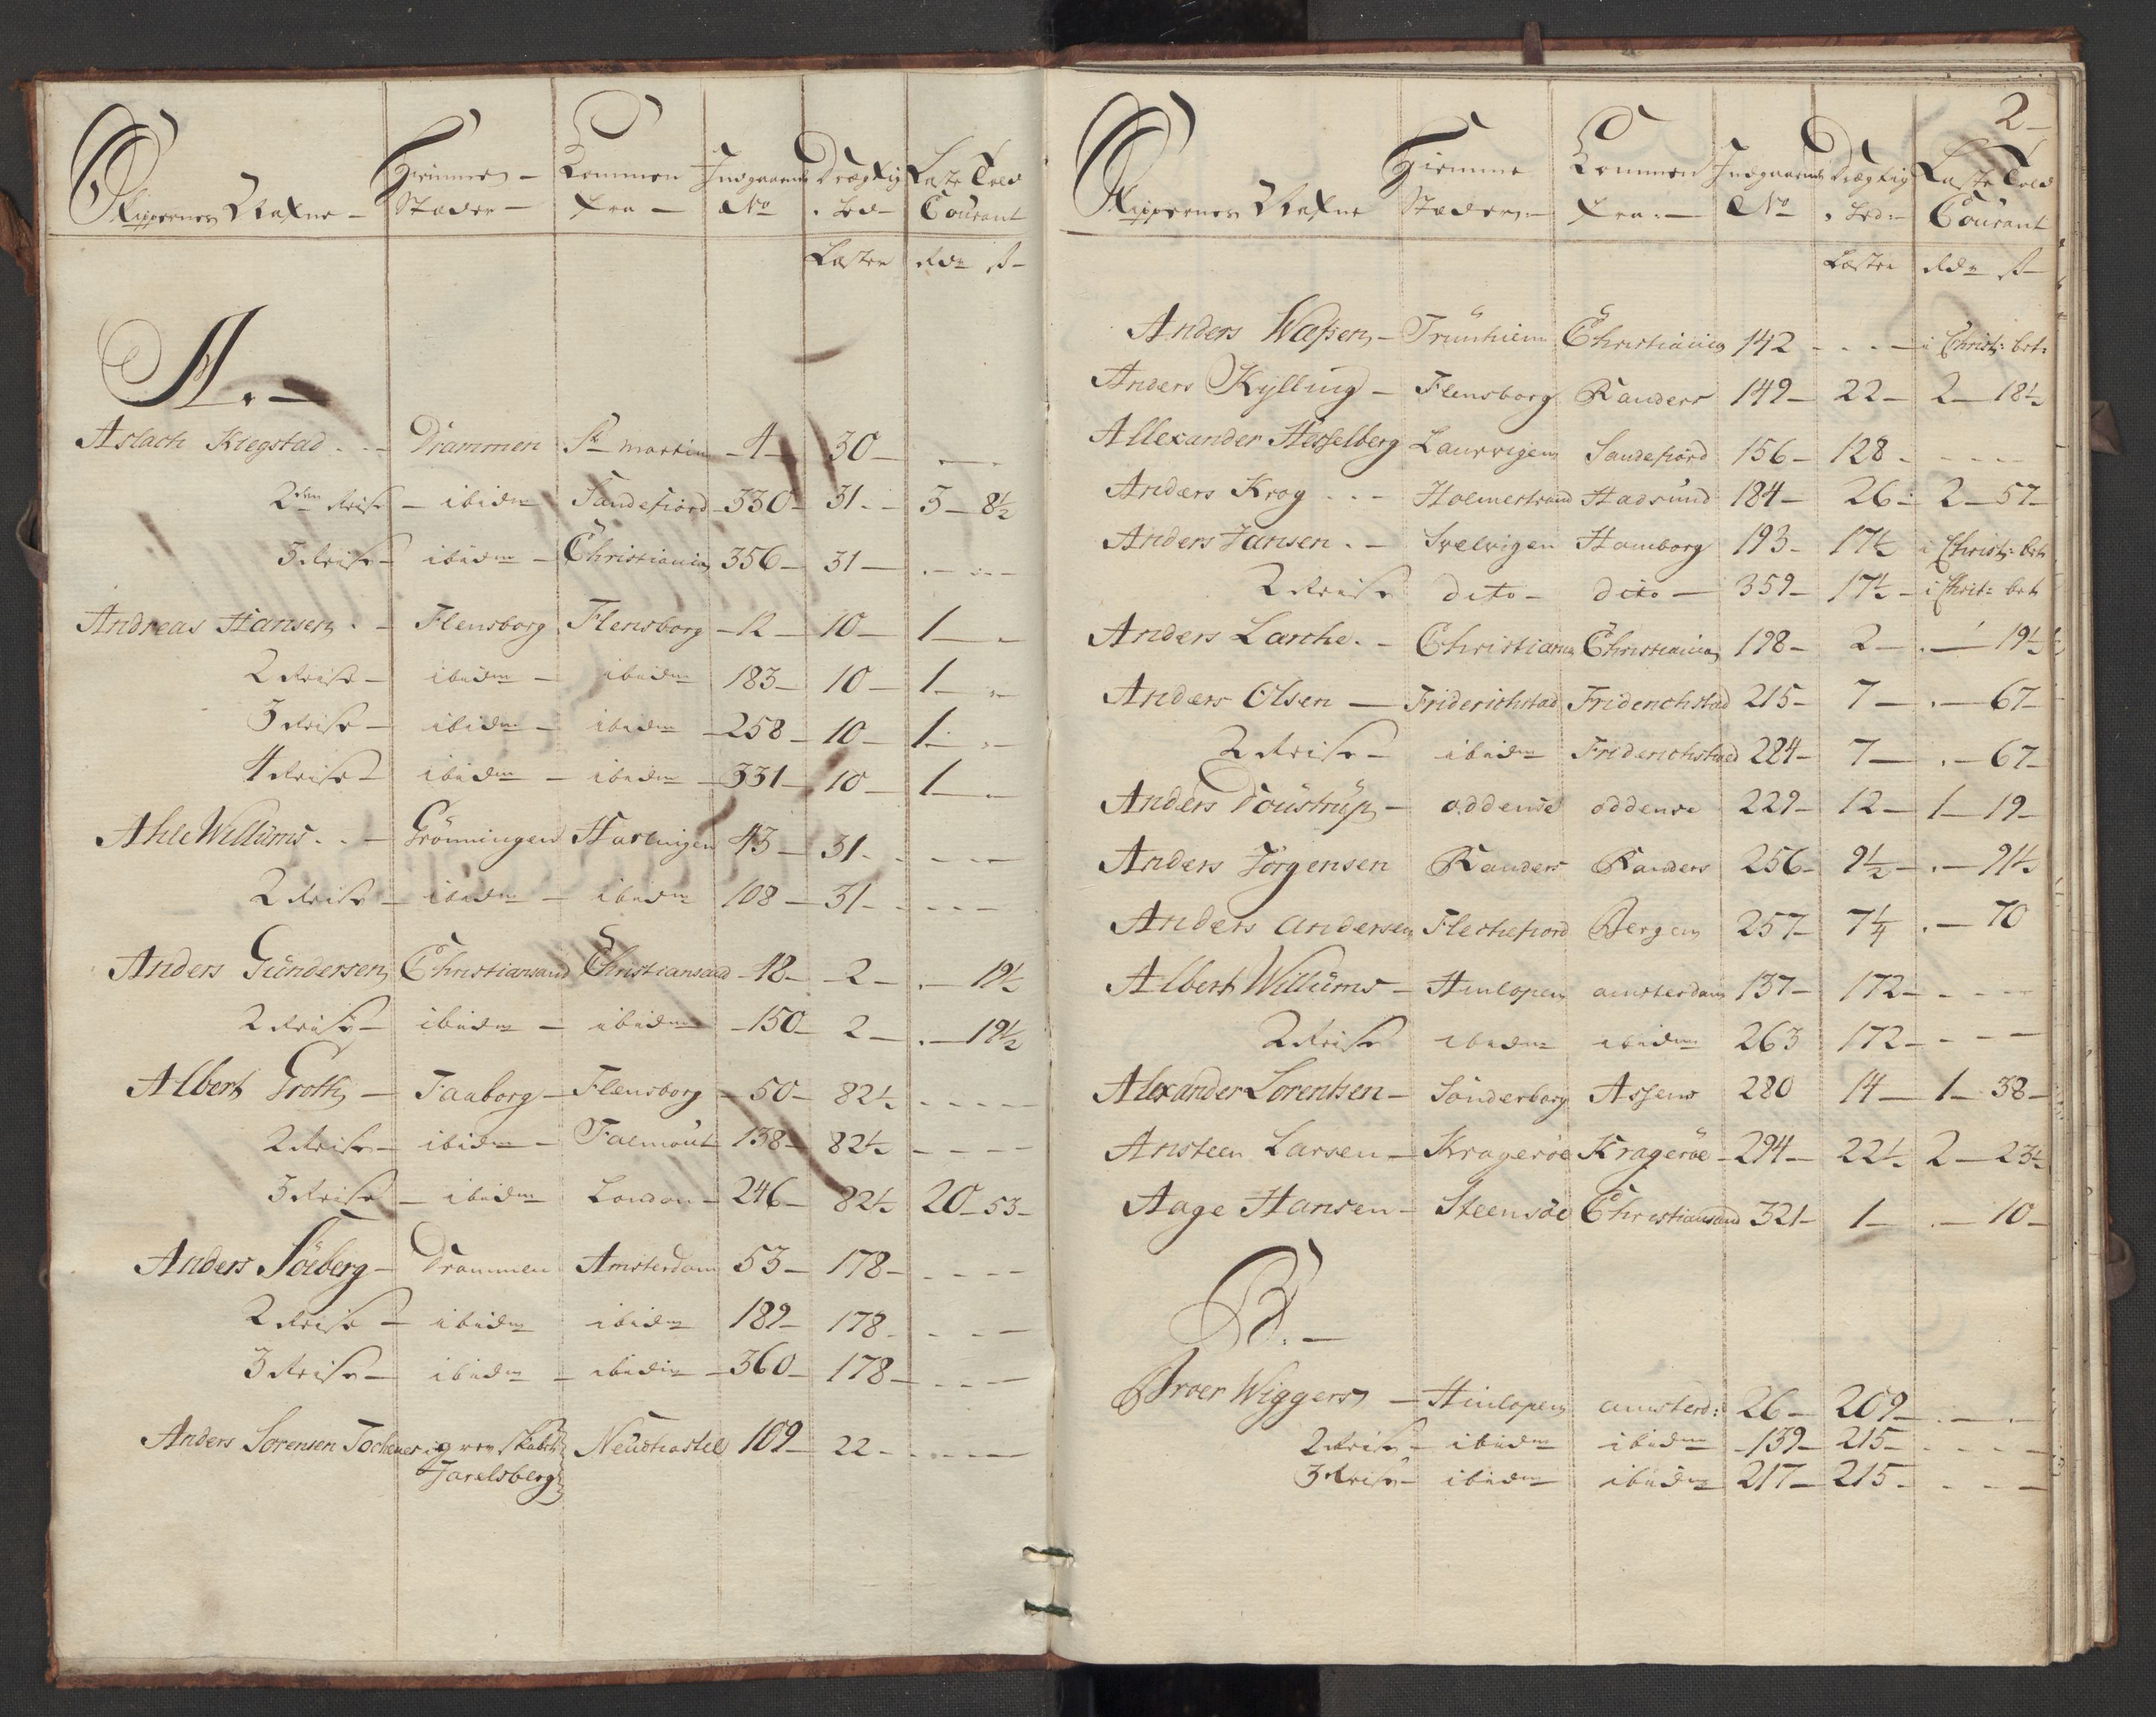 Skippernes Nafne – Hiemmes – Kommen Indgaaende Drægtig Laste Told
Stæder – fra – No hed – Courant
Læster Rdr s –
A. –
Aslach Kiegstad . . – Drammen St Martin – 4 – 30 – . – . –
2den Reise – ibidm Sandefiord – 330 – 31 . – 3 – 8½
3 Reise – ibidm – Christiania 356 – 31 – . – . . –
Andreas Hansen . – Flensborg Flensborg – 12 – 10 – 1 – . –
2 Reise – ibidm – ibidm 183 – 10 – 1 – . –
3 Reise – ibidm – ibidm – 258 – 10 – 1 – . –
4 Reise – ibidm – ibidm – 331 – 10 – 1 – . –
Ahle Willüms . . – Grönningen Harlingen 43 – 31 . – – –
2 Reise – ibidm – ibidm 108 – 31 – – – –
Anders Gündersen Christiansand Christiansand – 48 – 2 – . – 19½
2 Reise – ibidm – ibidm – 150 – 2 – . – 19½
Albert Groth – Faaborg – Flensborg – 50 – 82½ – – – –
2 Reise – ibidm – Falmout 138 – 82½ – – – –
3 Reise – ibidm London – 246 – 82½ 20 – 53 –
Anders Söeberg – Drammen Amsterdam 53 – 178 – – – –
2 Reise – ibidm ibidm 189 – 178 – – – –
3 Reise – ibidm – ibidm – 360 – 178 – – – –
Anders Sorensen Neuckastel 109 – 22 – – – –
Jarelsberg
2 –
Skippernes Nafne Hiemme Kommen Indgaaende Drægtig Laste Told
Stæder – fra . – No hed : Courant
Læster Rdr s –
Anders Waesen – Trünhiem Christiania 142 – – – – i Christ: bet:
Anders Kylling – Flensborg Randers 149 – 22 – 2 – 18½
Allexander Hesselberg Laurvigen Sandefiord 156 – 128 – – – –
Anders Krog . . – Holmestrand Hadsund 184 – 26 – 2 – 57 –
Anders Jansen . – Svelvigen Hamborg 193 – 17½ i Christ: bet
2 Reise dito – dito – 359 – 17½ – i Christ: bet
Anders Larche . – Christiania Christiania 198 – 2 – . – 19½
Anders Olsen – Friderichstad Friderichstad 215 – 7 – . – 67 –
2 Reise – ibidm Friderichstad 284 – 7 – . – 67 –
Anders Poustrüp – oddense oddense 229 – 12 – 1 – 19 –
Anders Jörgensen Randers Randers 256 – 9½ – . – 91½
Anders andersen Flechefiord Bergen 257 – 7¼ . – 70
Albert Willüms – Hinlopen amsterdam 137 – 172 – – – –
2 Reise ibidm ibidm 263 172 – – – –
Alexander Lorentsen – Sönderborg Assens 280 14 – 1 – 38 –
Ansteen Larsen – Kragerøe Kragerøe – 294 – 22½ 2 – 23½
Aage Hansen – Steensöe Christiansand 321 – 1 – . – 10 –
B. –
Broer Wiggers – Hinlopen amsterd: 26 – 209 – . – . –
2 Reise – ibidm ibidm – 139 – 215 – – – –
3 Reise – ibidm ibidm 217 – 215 – – – –